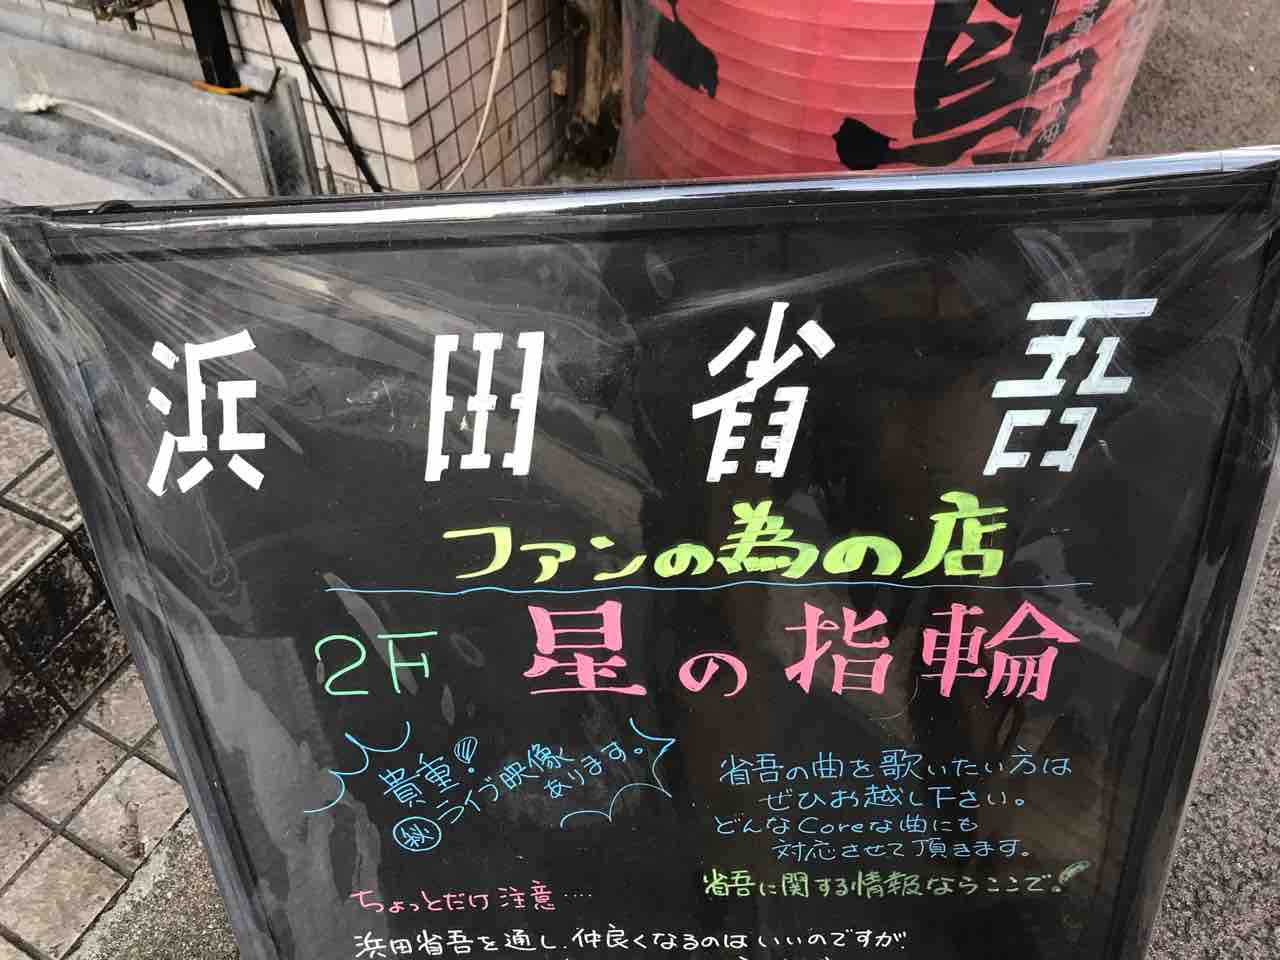 浜田省吾
ファンの為の店
2F 星の指輪
貴重!
㊙ライブ映像
あります。
省吾の曲を歌いたい方は
ぜひお越し下さい。
どんなCoreな曲にも
対応させて頂きます。
省吾に関する情報ならここで!
ちょっとだけ注意....
浜田省吾を通し、仲良くなるのはいいのですが